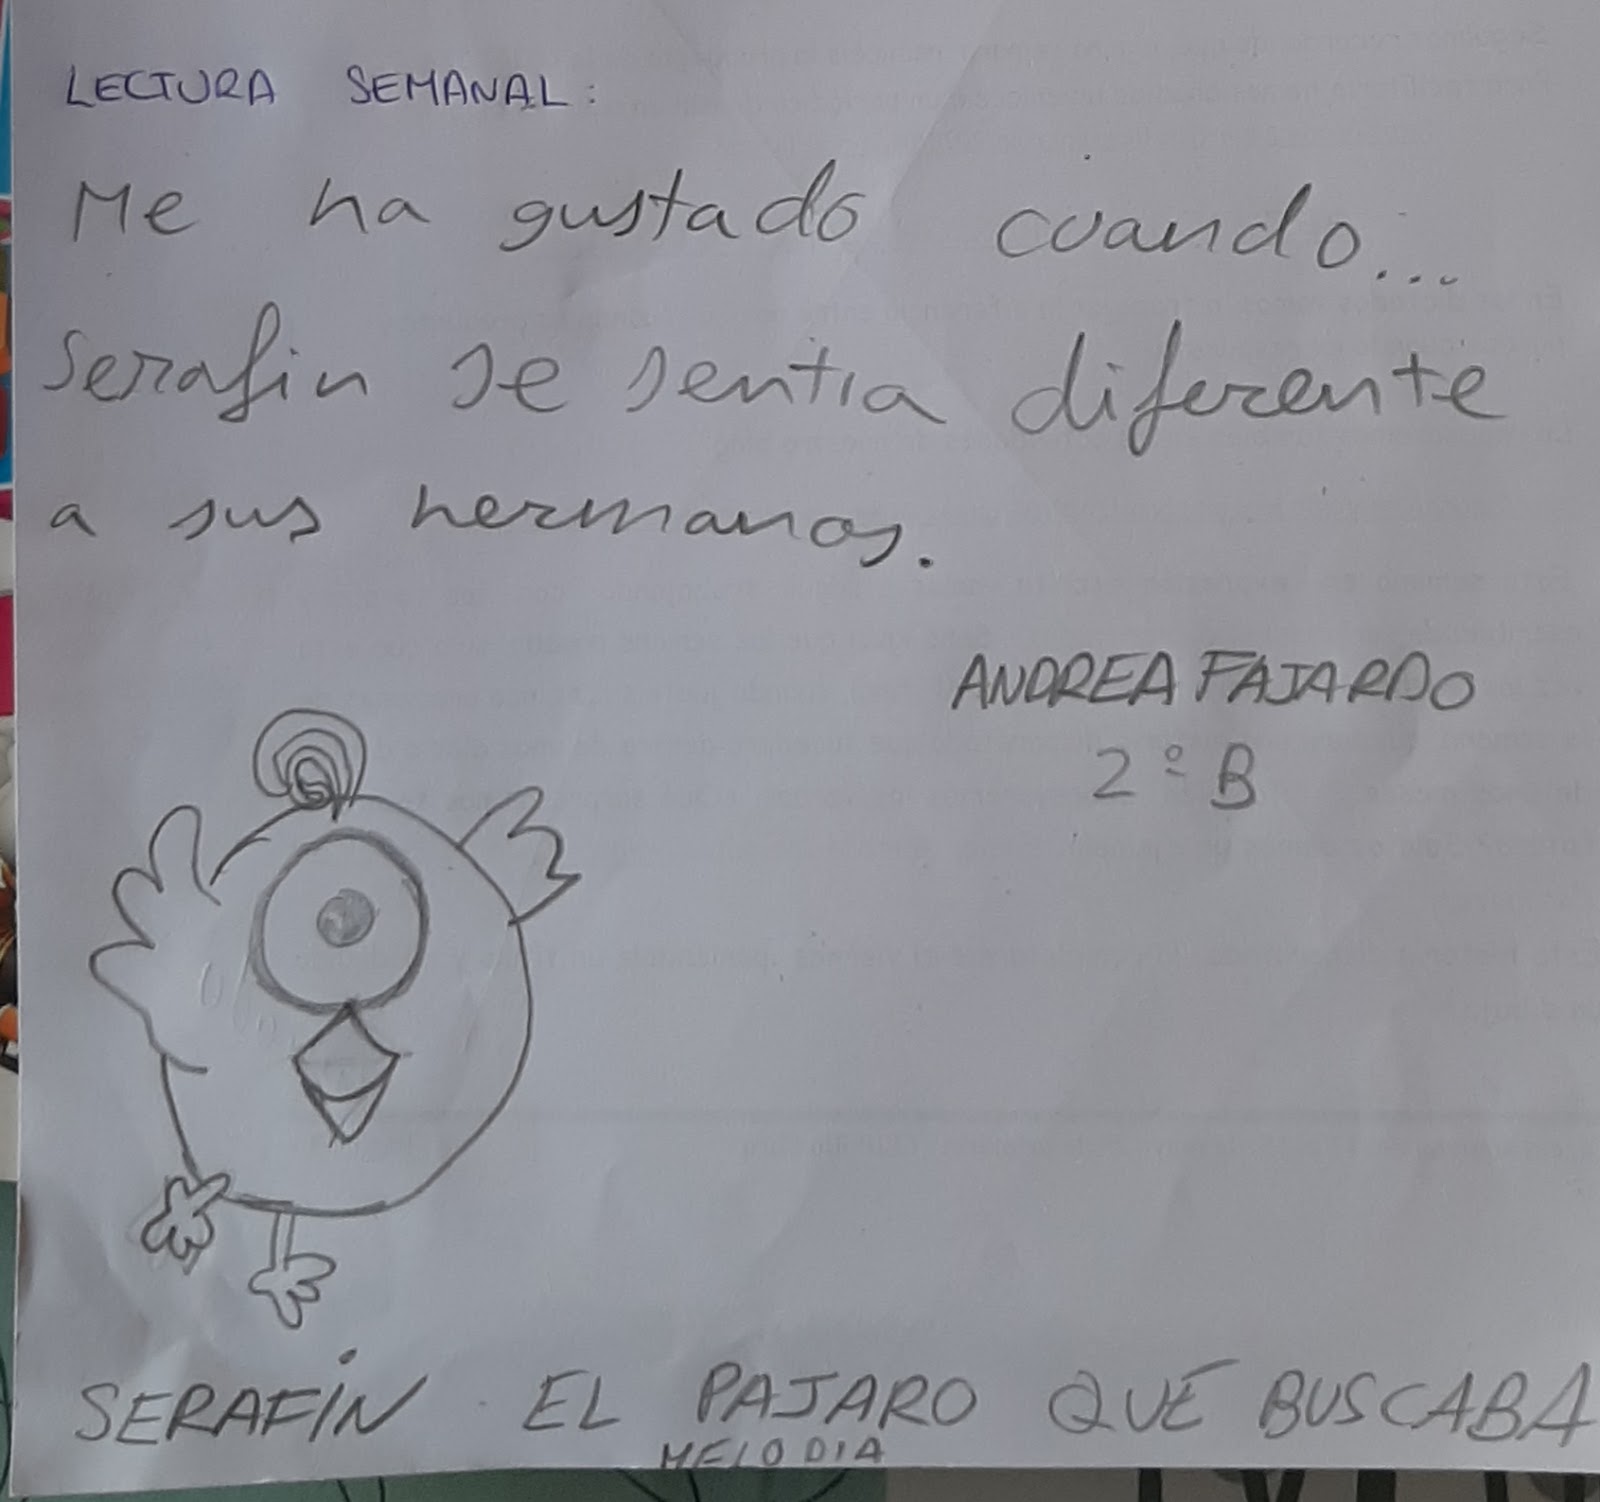 LECTURA SEMANAL:
Me ha gustado cuando...
Serafin se sentia diferente
a sus hermanos.
ANDREA FAJARDO
2º B
SERAFIN EL PAJARO QUE BUSCABA
MELODIA